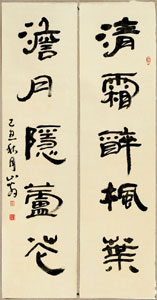 清霜醉楓葉
澹月隱蘆花
己丑秋月